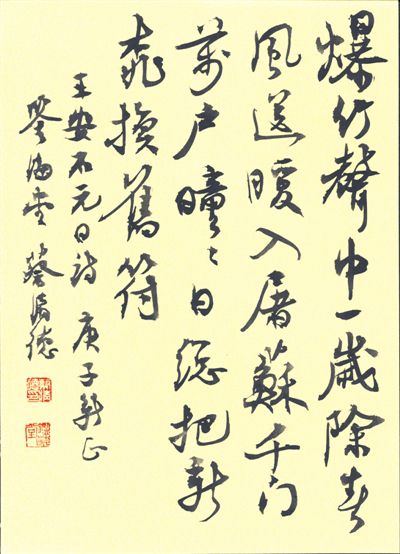 爆竹聲中一歲除春
風送暖入屠蘇千门
萬户曈〻日總把新
桃換舊符
王安石元日詩 庚子新正
海堂 蔡德